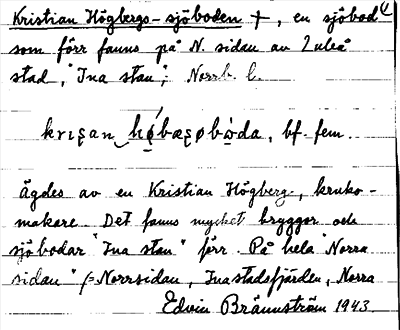 Kristian Högbergs-sjöboden +, en sjöbod
som förr fanns på N. sidan av Luleå
stad, "Ina stan", Norrb. l.
bf. fem.
ägdes av en Kristian Högberg, kruko-
makare. Det fanns mycket bryggor och
sjöbodar "Ina stan" förr. På hela "Norra
sidan" (= Norrsidan, Inastadsfjärden, Norra
Edvin Brännström 1943.